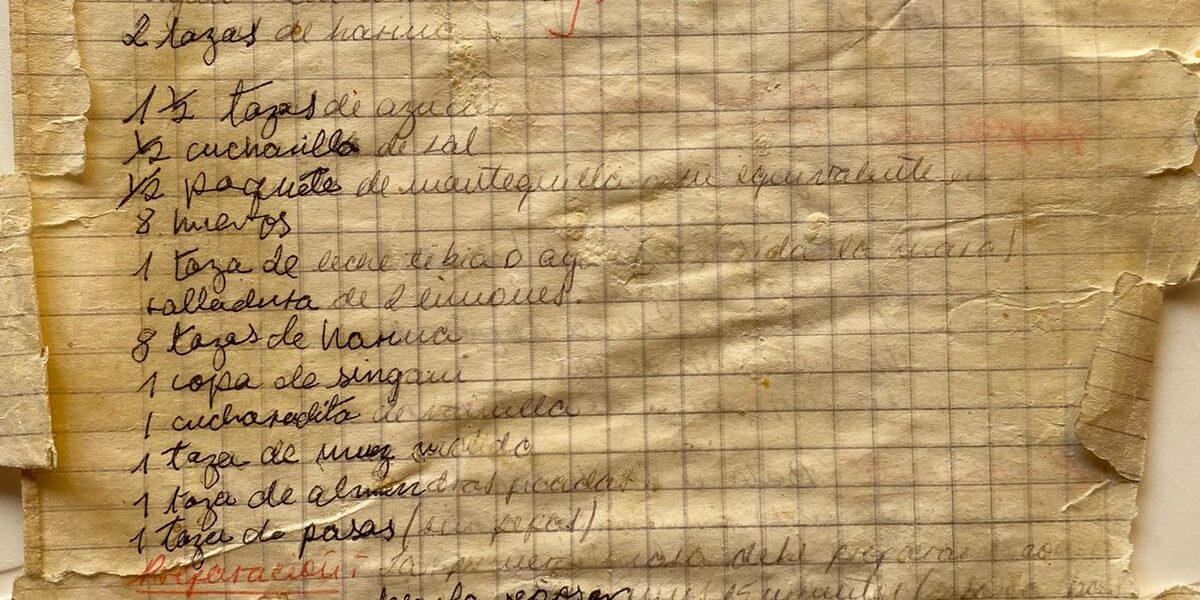 2 tazas de harina
1 ½ tazas de azucar
½ cucharilla de sal
½ paquete de mantequilla o su equivalente en
8 huevos
1 taza de leche tibia o agua la masa!
ralladura de 2 limones.
8 tazas de harina
1 copa de singani
1 cucharadita de vainilla
1 taza de nuez molida
1 taza de almendras picadas
1 taza de pasas (sin pepas)
Preparación: La primera masa debe preparar
reposar 15 minutos